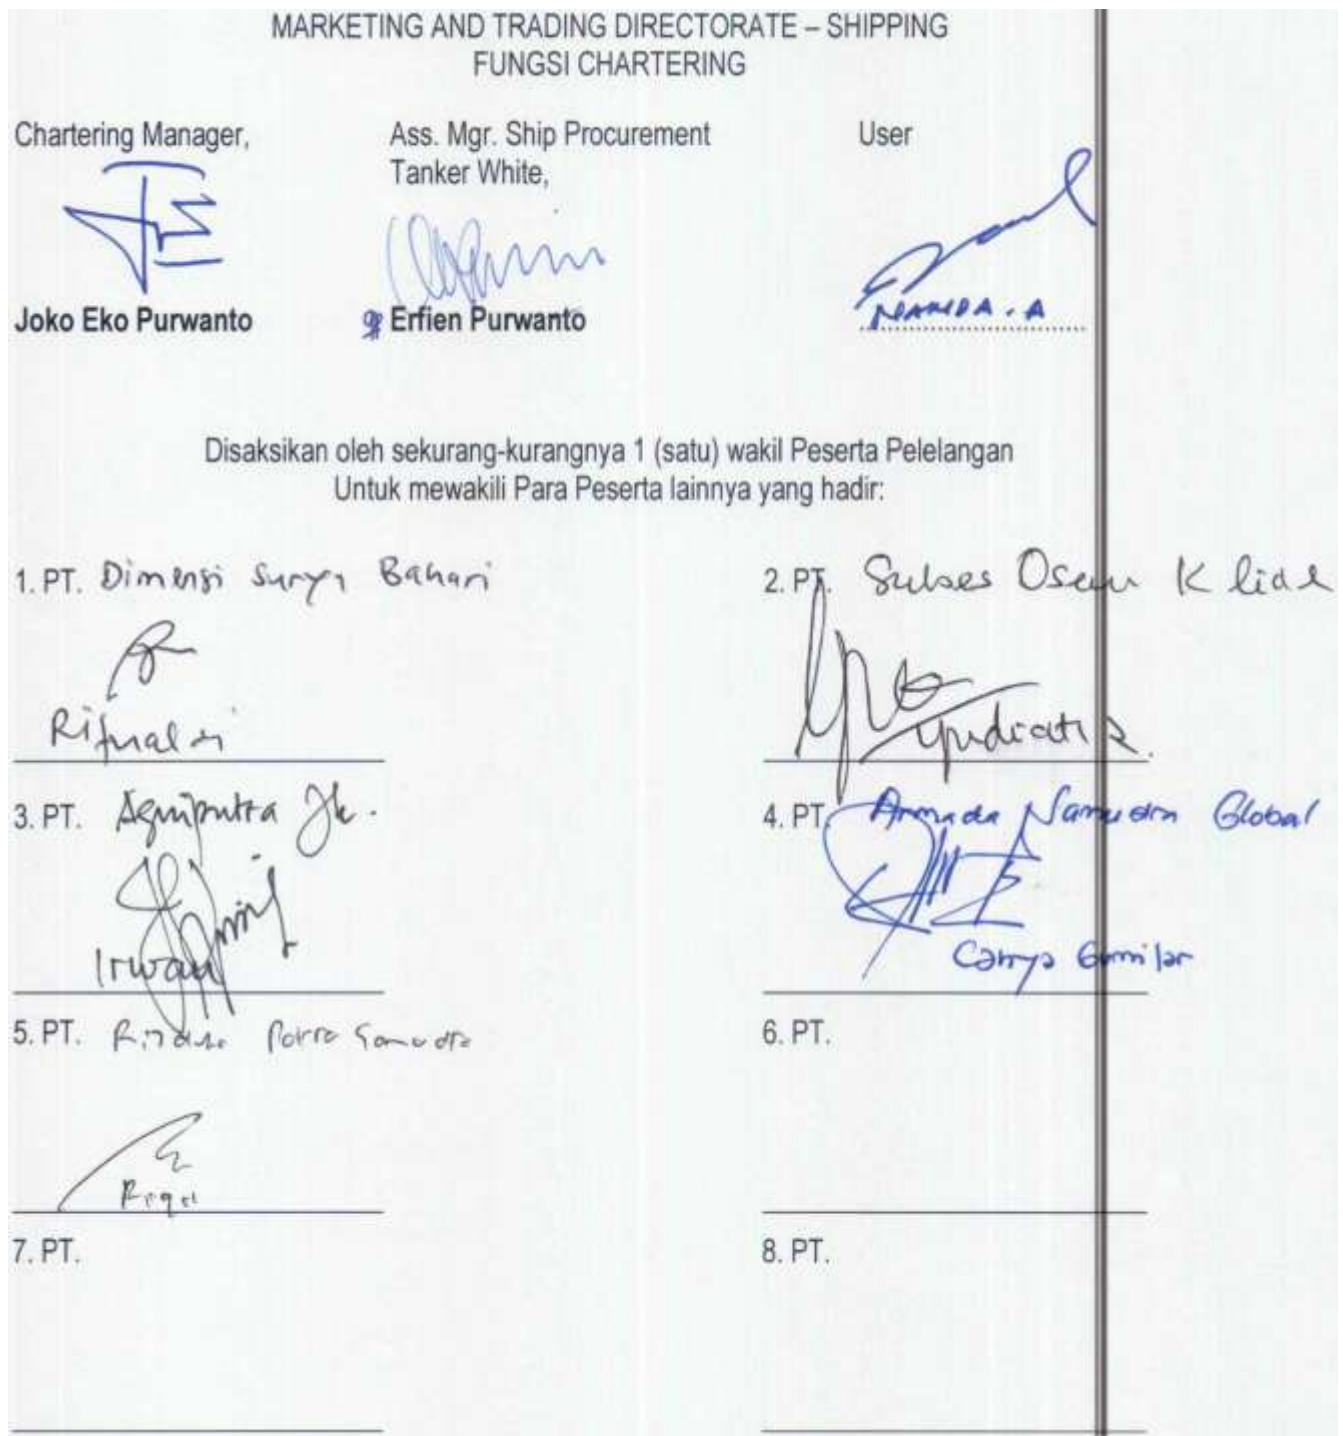 MARKETING AND TRADING DIRECTORATE – SHIPPING
FUNGSI CHARTERING
Chartering Manager,
Ass. Mgr. Ship Procurement
Tanker White,
User
Joko Eko Purwanto
Erfien Purwanto
Disaksikan oleh sekurang-kurangnya 1 (satu) wakil Peserta Pelelangan
Untuk mewakili Para Peserta lainnya yang hadir:
1. PT. Dimensi Surya Bahari
2. PT. Sukses Osean
3. PT. Agniputra
Irwan
4. PT. Armada Samudra Global
Cahya Gumilar
5. PT. Samudra
6. PT.
7. PT.
8. PT.